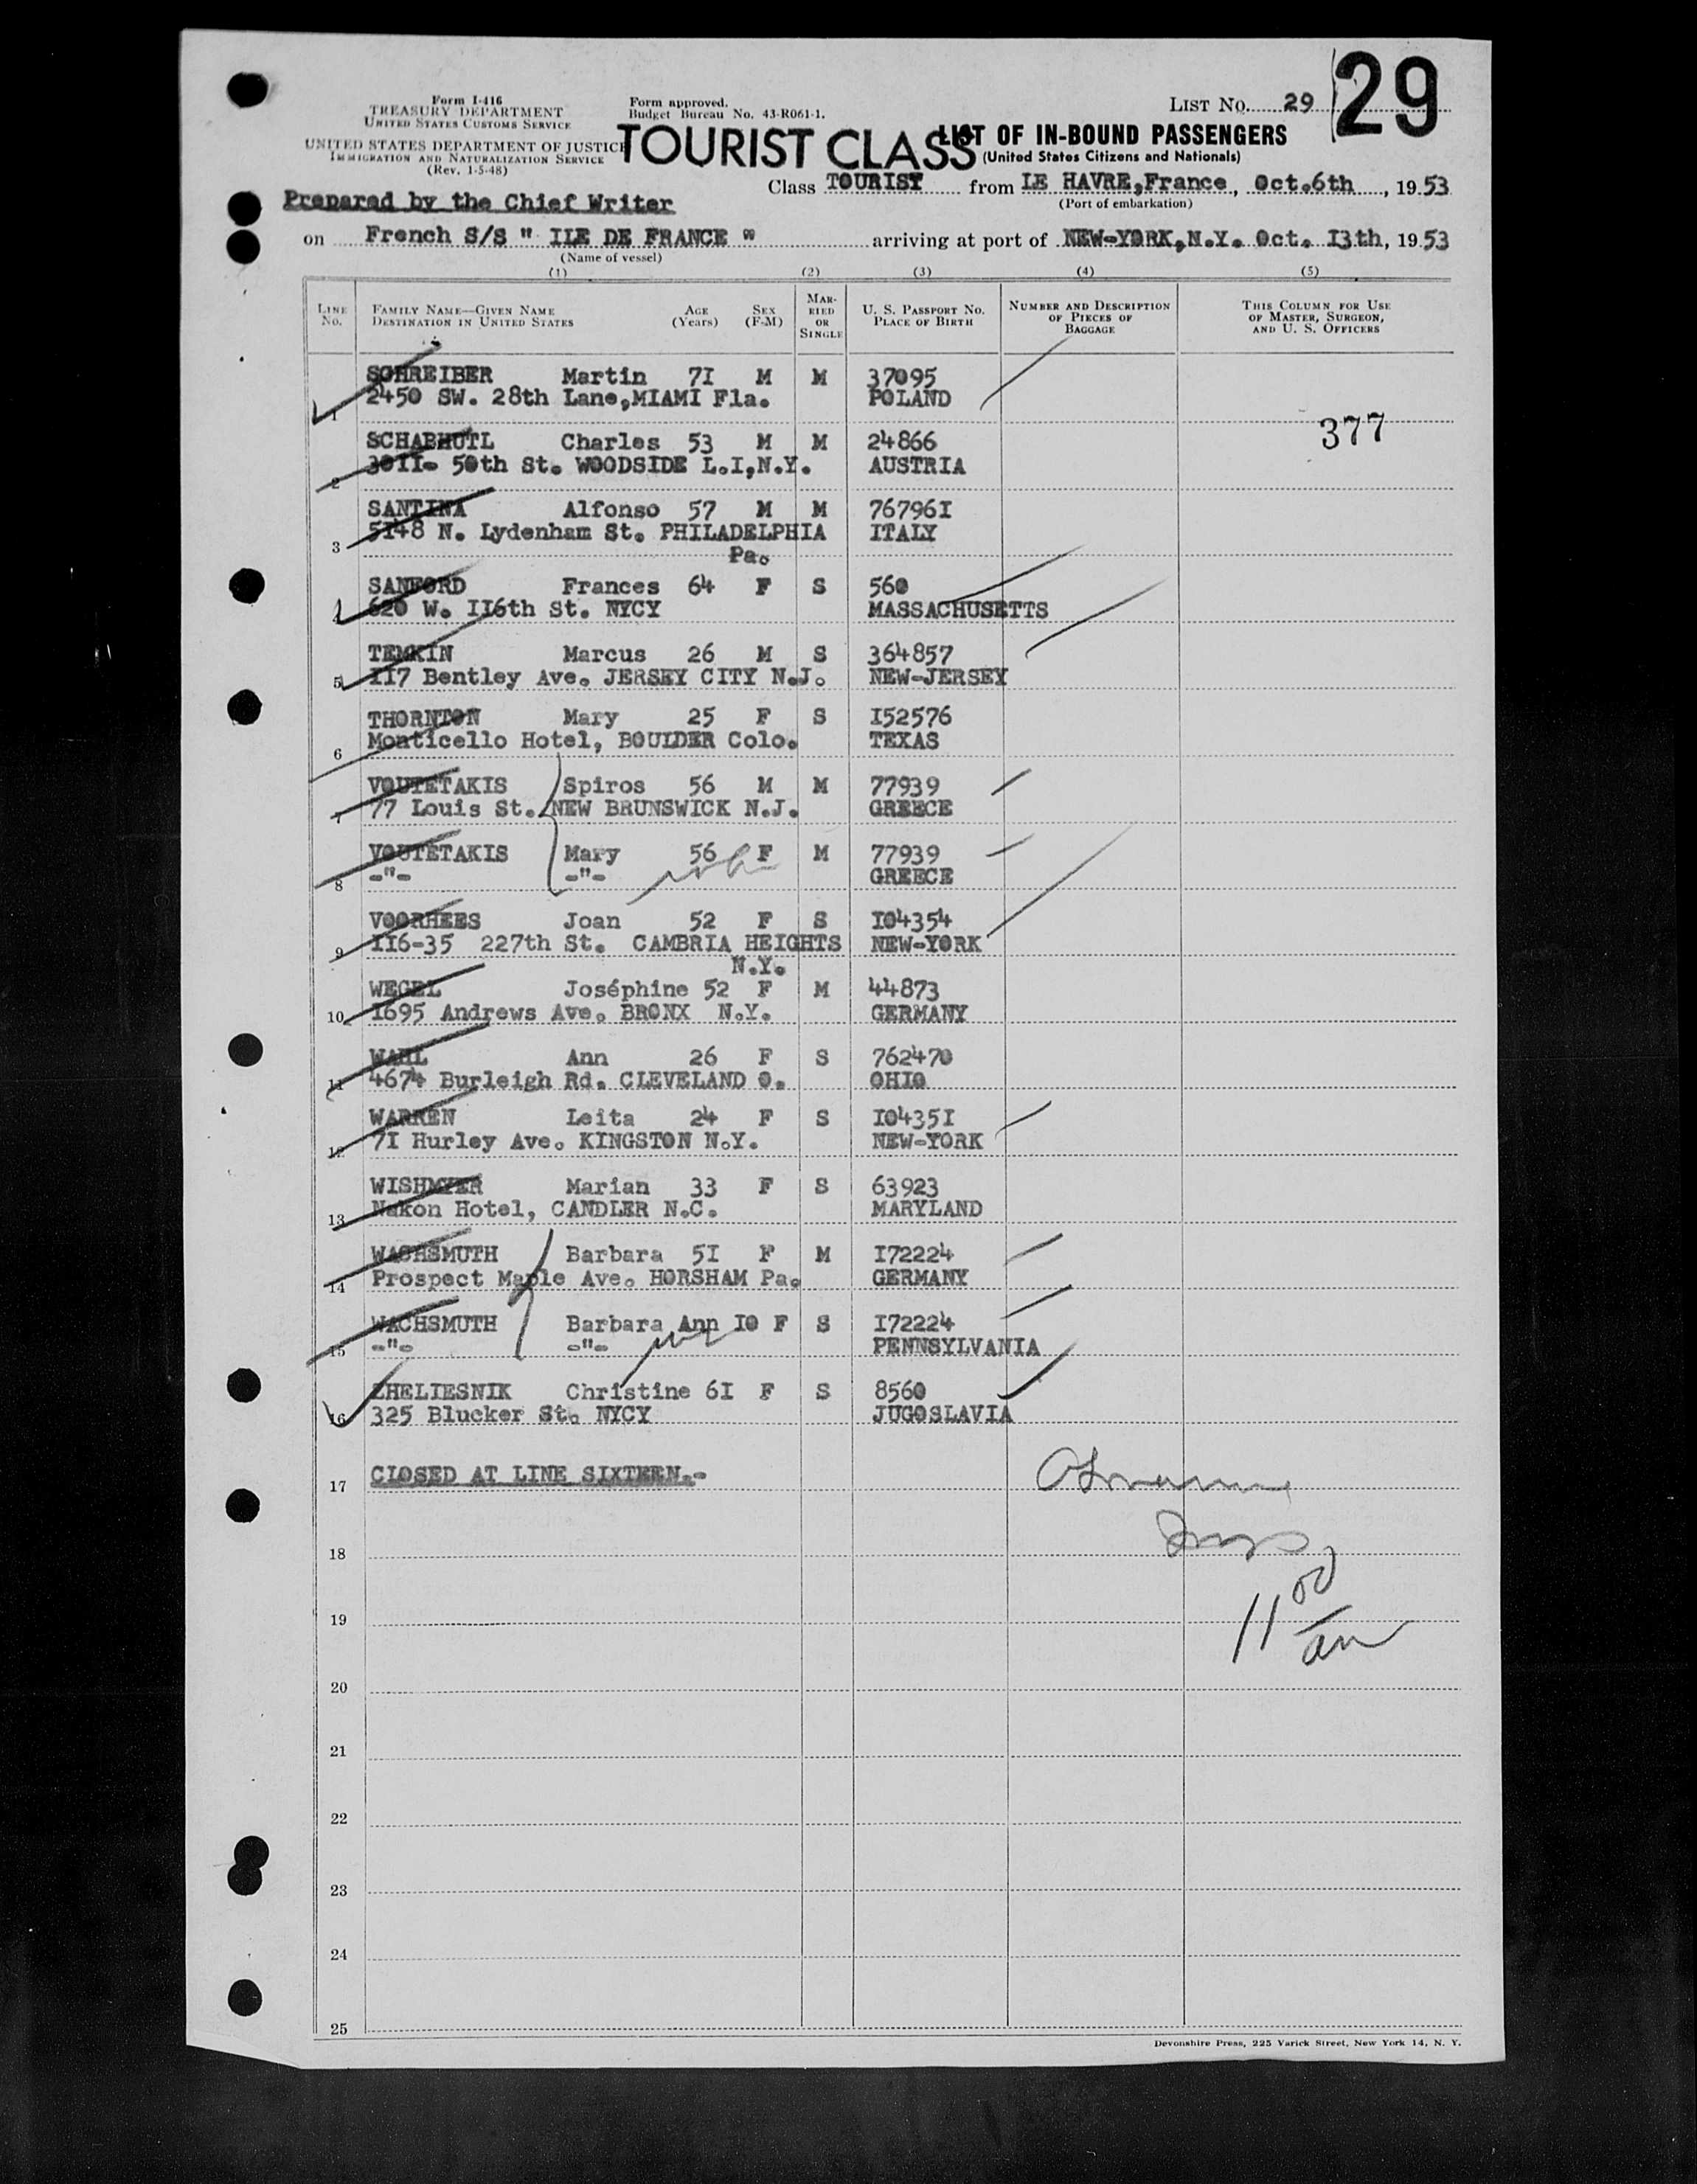 Form I-416
TREASURY DEPARTMENT
UNITED STATES CUSTOMS SERVICE
UNITED STATES DEPARTMENT OF JUSTICE
IMMIGRATION AND NATURALIZATION SERVICE
(Rev. 1-5-48)
Form approved.
Budget Bureau No. 43-R061-1.
LIST No. 29
29
TOURIST CLASS
LIST OF IN-BOUND PASSENGERS
(United States Citizens and Nationals)
Class TOURIST from LE HAVRE,France, Oct.6th, 1953
(Port of embarkation)
Prepared by the Chief Writer
on French S/S " ILE DE FRANCE " arriving at port of NEW-YORK,N.Y. Oct. I3th, 1953
(Name of vessel)
(1) (2) (3) (4) (5)
LINE No. FAMILY NAME—GIVEN NAME DESTINATION IN UNITED STATES AGE (Years) SEX (F-M) MARRIED OR SINGLE U. S. PASSPORT No. PLACE OF BIRTH NUMBER AND DESCRIPTION OF PIECES OF BAGGAGE THIS COLUMN FOR USE OF MASTER, SURGEON, AND U. S. OFFICERS
SCHREIBER Martin 7I M M 37095
1 2450 SW. 28th Lane,MIAMI Fla. POLAND
377
SCHABHUTL Charles 53 M M 24866
2 30II- 50th St. WOODSIDE L.I,N.Y. AUSTRIA
SANTINA Alfonso 57 M M 76796I
3 5148 N. Lydenham St. PHILADELPHIA ITALY
Pa.
SANFORD Frances 64 F S 560
4 620 W. II6th St. NYCY MASSACHUSETTS
TEMKIN Marcus 26 M S 364857
5 II7 Bentley Ave. JERSEY CITY N.J. NEW-JERSEY
THORNTON Mary 25 F S I52576
6 Monticello Hotel, BOULDER Colo. TEXAS
VOUTETAKIS Spiros 56 M M 77939
7 77 Louis St. NEW BRUNSWICK N.J. GREECE
VOUTETAKIS Mary 56 F M 77939
8 -"- -"- GREECE
VOORHEES Joan 52 F S I04354
9 II6-35 227th St. CAMBRIA HEIGHTS NEW-YORK
N.Y.
WEGEL Joséphine 52 F M 44873
10 I695 Andrews Ave. BRONX N.Y. GERMANY
WAHL Ann 26 F S 762470
11 4674 Burleigh Rd. CLEVELAND O. OHIO
WARREN Leita 24 F S I0435I
12 7I Hurley Ave. KINGSTON N.Y. NEW-YORK
WISHMYER Marian 33 F S 63923
13 Nakon Hotel, CANDLER N.C. MARYLAND
WACHSMUTH Barbara 5I F M I72224
14 Prospect Maple Ave. HORSHAM Pa. GERMANY
WACHSMUTH Barbara Ann I0 F S I72224
15 -"- -"- PENNSYLVANIA
ZHELIESNIK Christine 6I F S 8560
16 325 Blucker St. NYCY JUGOSLAVIA
17 CLOSED AT LINE SIXTEEN.-
18
11 00 am
19
20
21
22
23
24
25
Devonshire Press, 225 Varick Street, New York 14, N. Y.